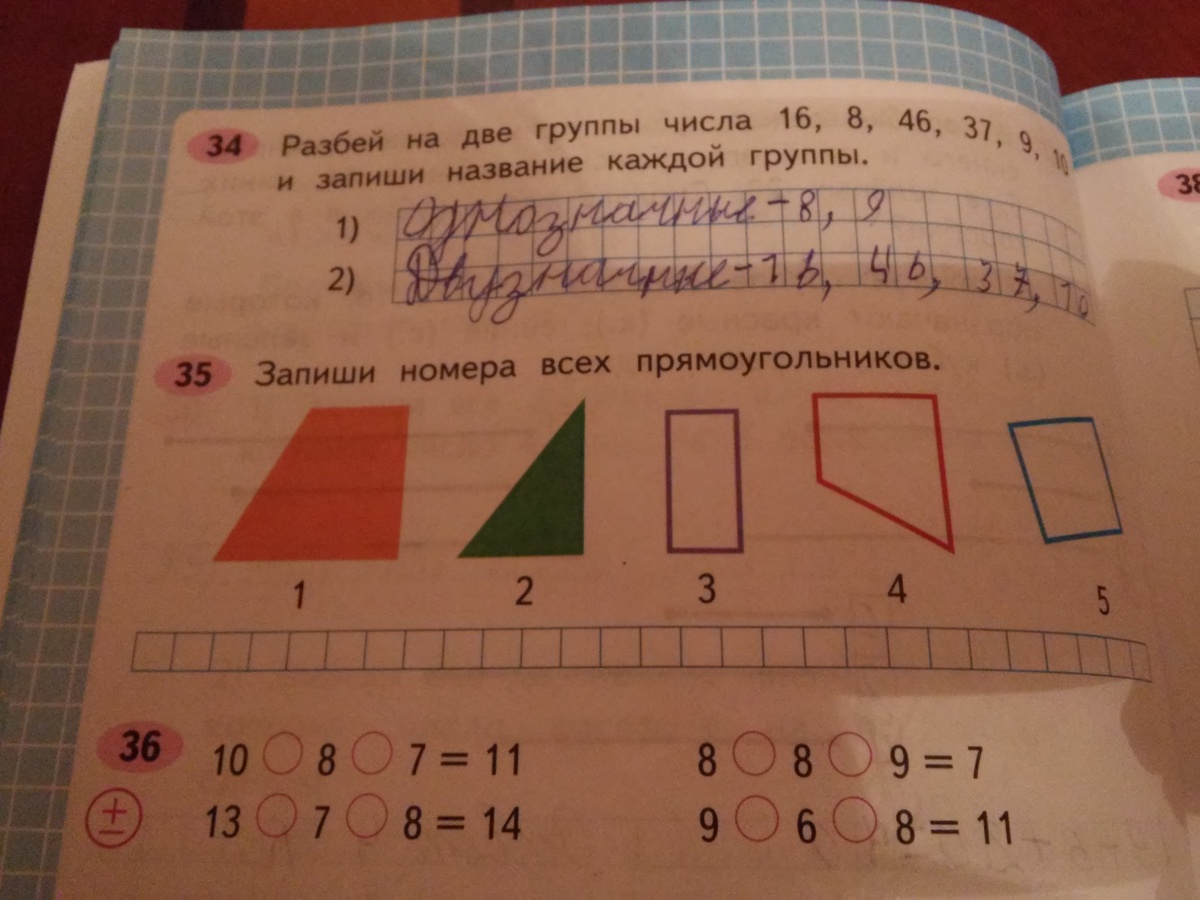 34 Разбей на две группы числа 16, 8, 46, 37, 9, 10
и запиши название каждой группы.
1) Однозначные - 8, 9
2) Двузначные - 16, 46, 37, 10
35 Запиши номера всех прямоугольников.
1 2 3 4 5
36 10 ○ 8 ○ 7 = 11 8 ○ 8 ○ 9 = 7
± 13 ○ 7 ○ 8 = 14 9 ○ 6 ○ 8 = 11
38